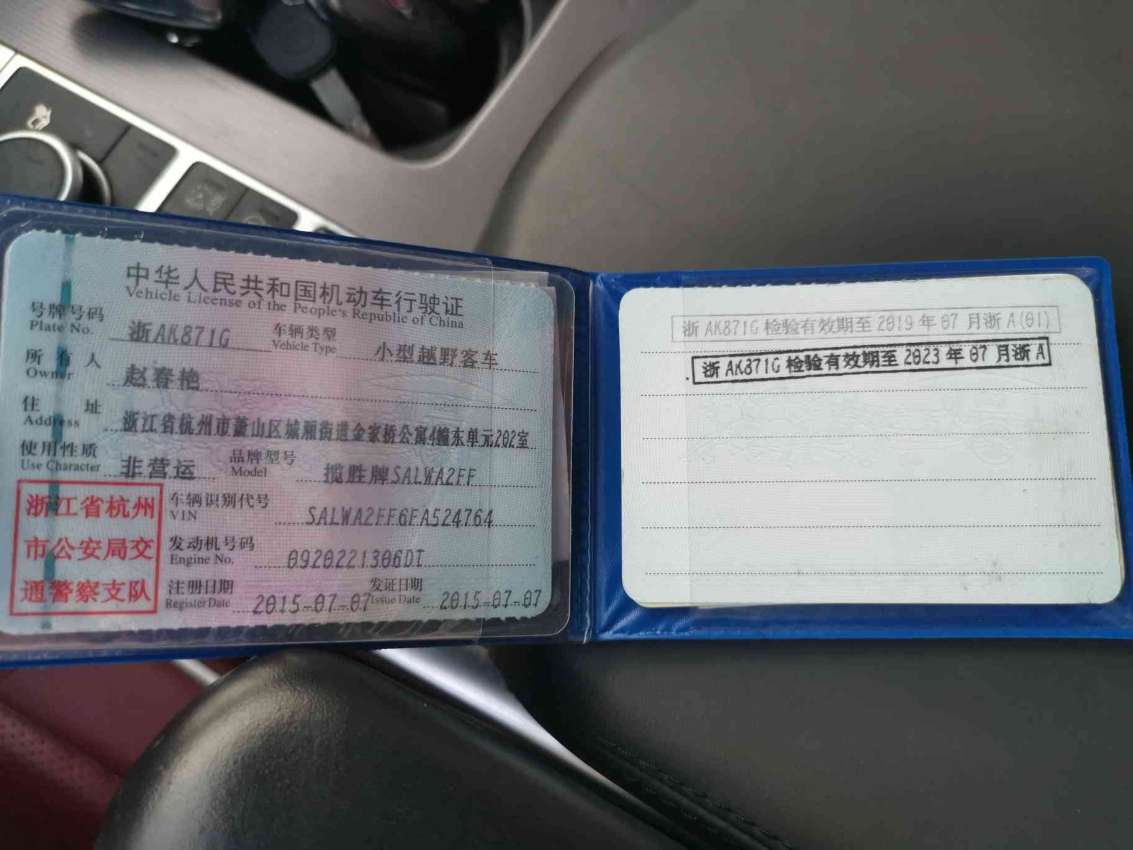 中华人民共和国机动车行驶证
Vehicle License of the People's Republic of China
号牌号码 浙AK871G 车辆类型 小型越野客车
Plate No. Vehicle Type
所有人 赵春艳
Owner
住址 浙江省杭州市萧山区城厢街道金家桥公寓4幢东单元202室
Address
使用性质 非营运 品牌型号 揽胜牌SALWA2FF
Use Character Model
浙江省杭州
市公安局交
通警察支队
车辆识别代号 SALWA2FF6FA524764
VIN
发动机号码 0920221306DT
Engine No.
注册日期 2015-07-07 发证日期 2015-07-07
Register Date Issue Date
浙AK871G检验有效期至2019年07月浙A(01)
浙AK871G检验有效期至2023年07月浙A